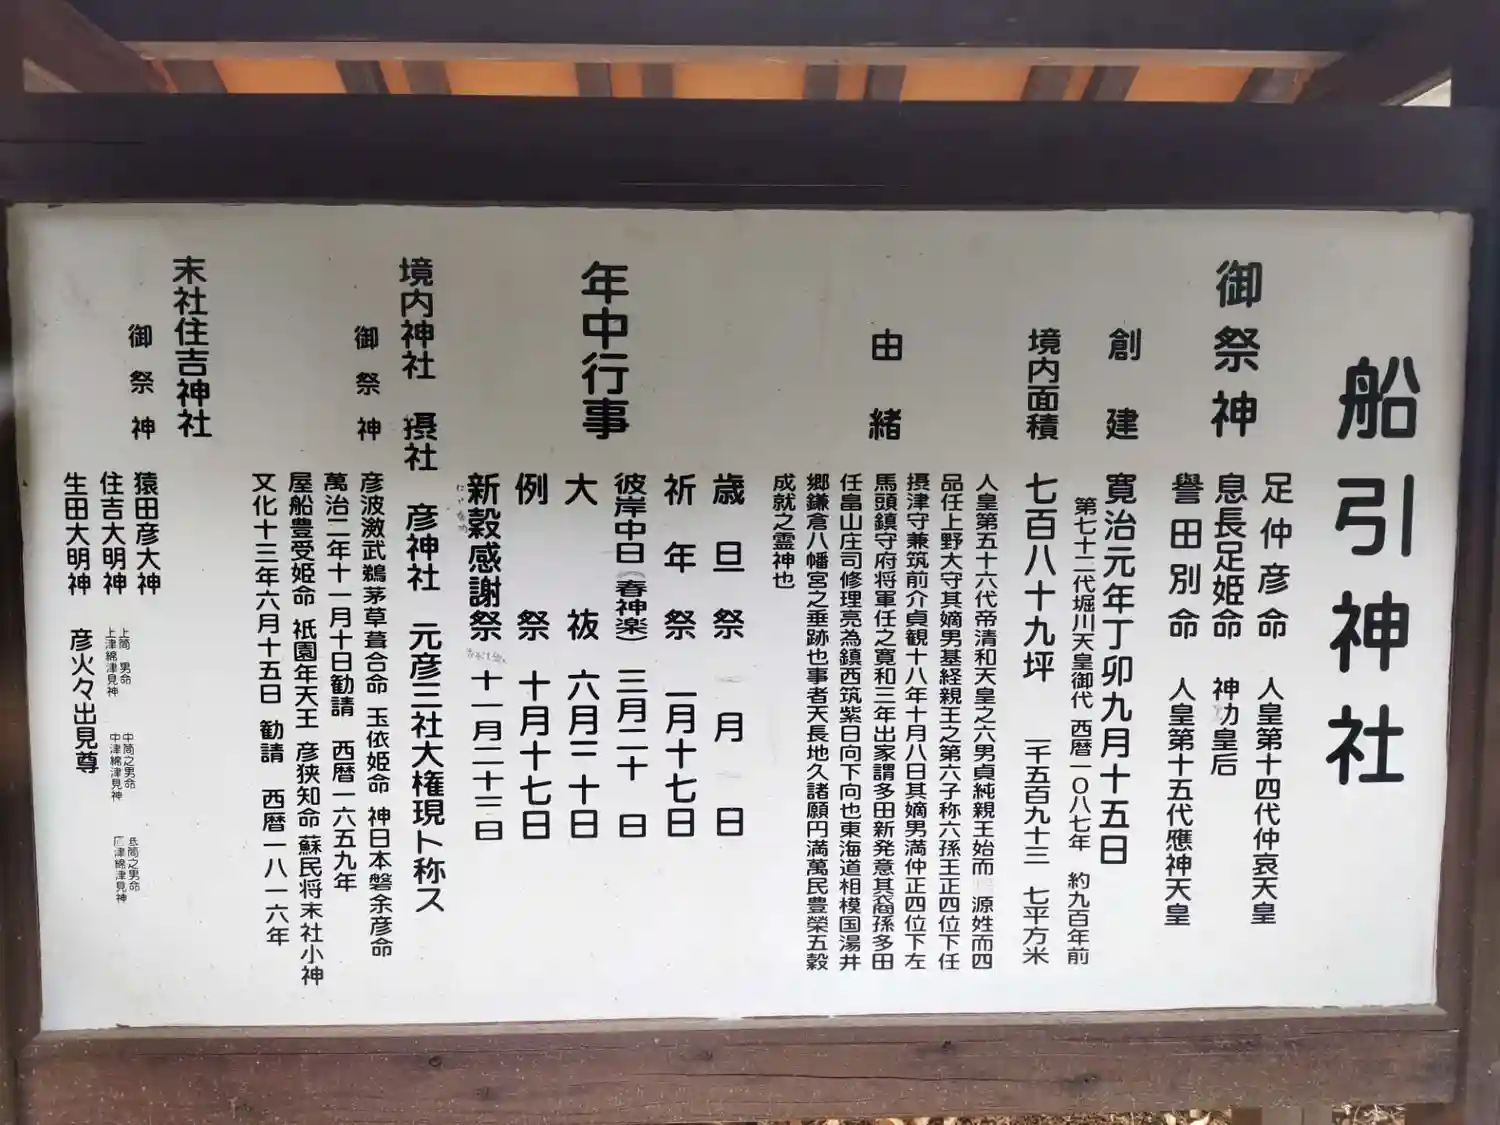 船引神社
御祭神
足仲彦命 人皇第十四代仲哀天皇
息長足姫命 神功皇后
譽田別命 人皇第十五代應神天皇
創建 寛治元年丁卯九月十五日
第七十二代堀川天皇御代 西暦一〇八七年 約九百年前
境内面積 七百八十九坪 二千五百九十三 七平方米
由緒
人皇第五十六代帝清和天皇之六男貞純親王始而 源姓而四
品任上野大守其嫡男基経親王之第六子称六孫王正四位下任
摂津守兼筑前介貞観十八年十月八日其嫡男満仲正四位下左
馬頭鎮守府将軍任之寛和三年出家謂多田新発意其裔孫多田
任畠山庄司修理亮為鎮西筑紫日向下向也東海道相模国湯井
郷鎌倉八幡宮之垂跡也事者天長地久諸願円満萬民豊榮五穀
成就之霊神也
年中行事
歳旦祭 一月一日
祈年祭 二月十七日
彼岸中日(春神楽) 三月二十 日
大祓 六月三十日
例祭 十月十七日
新穀感謝祭 十一月二十三日
境内神社 摂社 彦神社 元彦三社大権現ト称ス
御祭神
彦波瀲武鵜茅草葺合命 玉依姫命 神日本磐余彦命
萬治二年十一月十日勧請 西暦一六五九年
屋船豊受姫命 祇園年天王 彦狭知命 蘇民将末社小神
文化十三年六月十五日 勧請 西暦一八一六年
末社住吉神社
御祭神
猿田彦大神
住吉大明神
上筒 男命
上津綿津見神
中筒之男命
中津綿津見神
底筒之男命
津綿津見神
生田大明神 彦火々出見尊